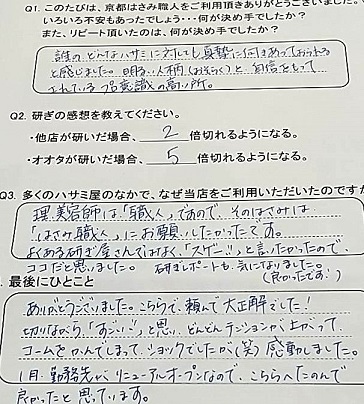 Q1. このたびは、京都はさみ職人をご利用頂きありがとうございました。
いろいろ不安もあったでしょう・・・何が決め手でしたか？
また、リピート頂いたのは、何が決め手でしたか？
誰の どんなハサミに対しても真摯に向きあっておられる
と感じました。明るい人柄(おそらく)と 自信をもって
されている プロ意識の高い所。
Q2. 研ぎの感想を教えてください。
・他店が研いだ場合、 2 倍切れるようになる。
・オオタが研いだ場合、 5 倍切れるようになる。
Q3. 多くのハサミ屋のなかで、なぜ当店をご利用いただいたのですか
理美容師は「職人」であので、そのはさみは
「はさみ職人」にお願いしたかったです。
よくある研ぎ屋さんではなく、「スゲー」と言いたかったので
ココだと思いました。 研ぎレポートも、気になりました。
(良かったです)
最後にひとこと
ありがとうございました。こちらで、頼んで大正解でした！
切りながら、「すごい」と思い、どんどんテンションが上がって
コームをかんでしまって、ショックでしたが(笑) 感動しました。
1月 勤務先がリニューアルオープンなので、こちらへたのんで
良かったと思っています。